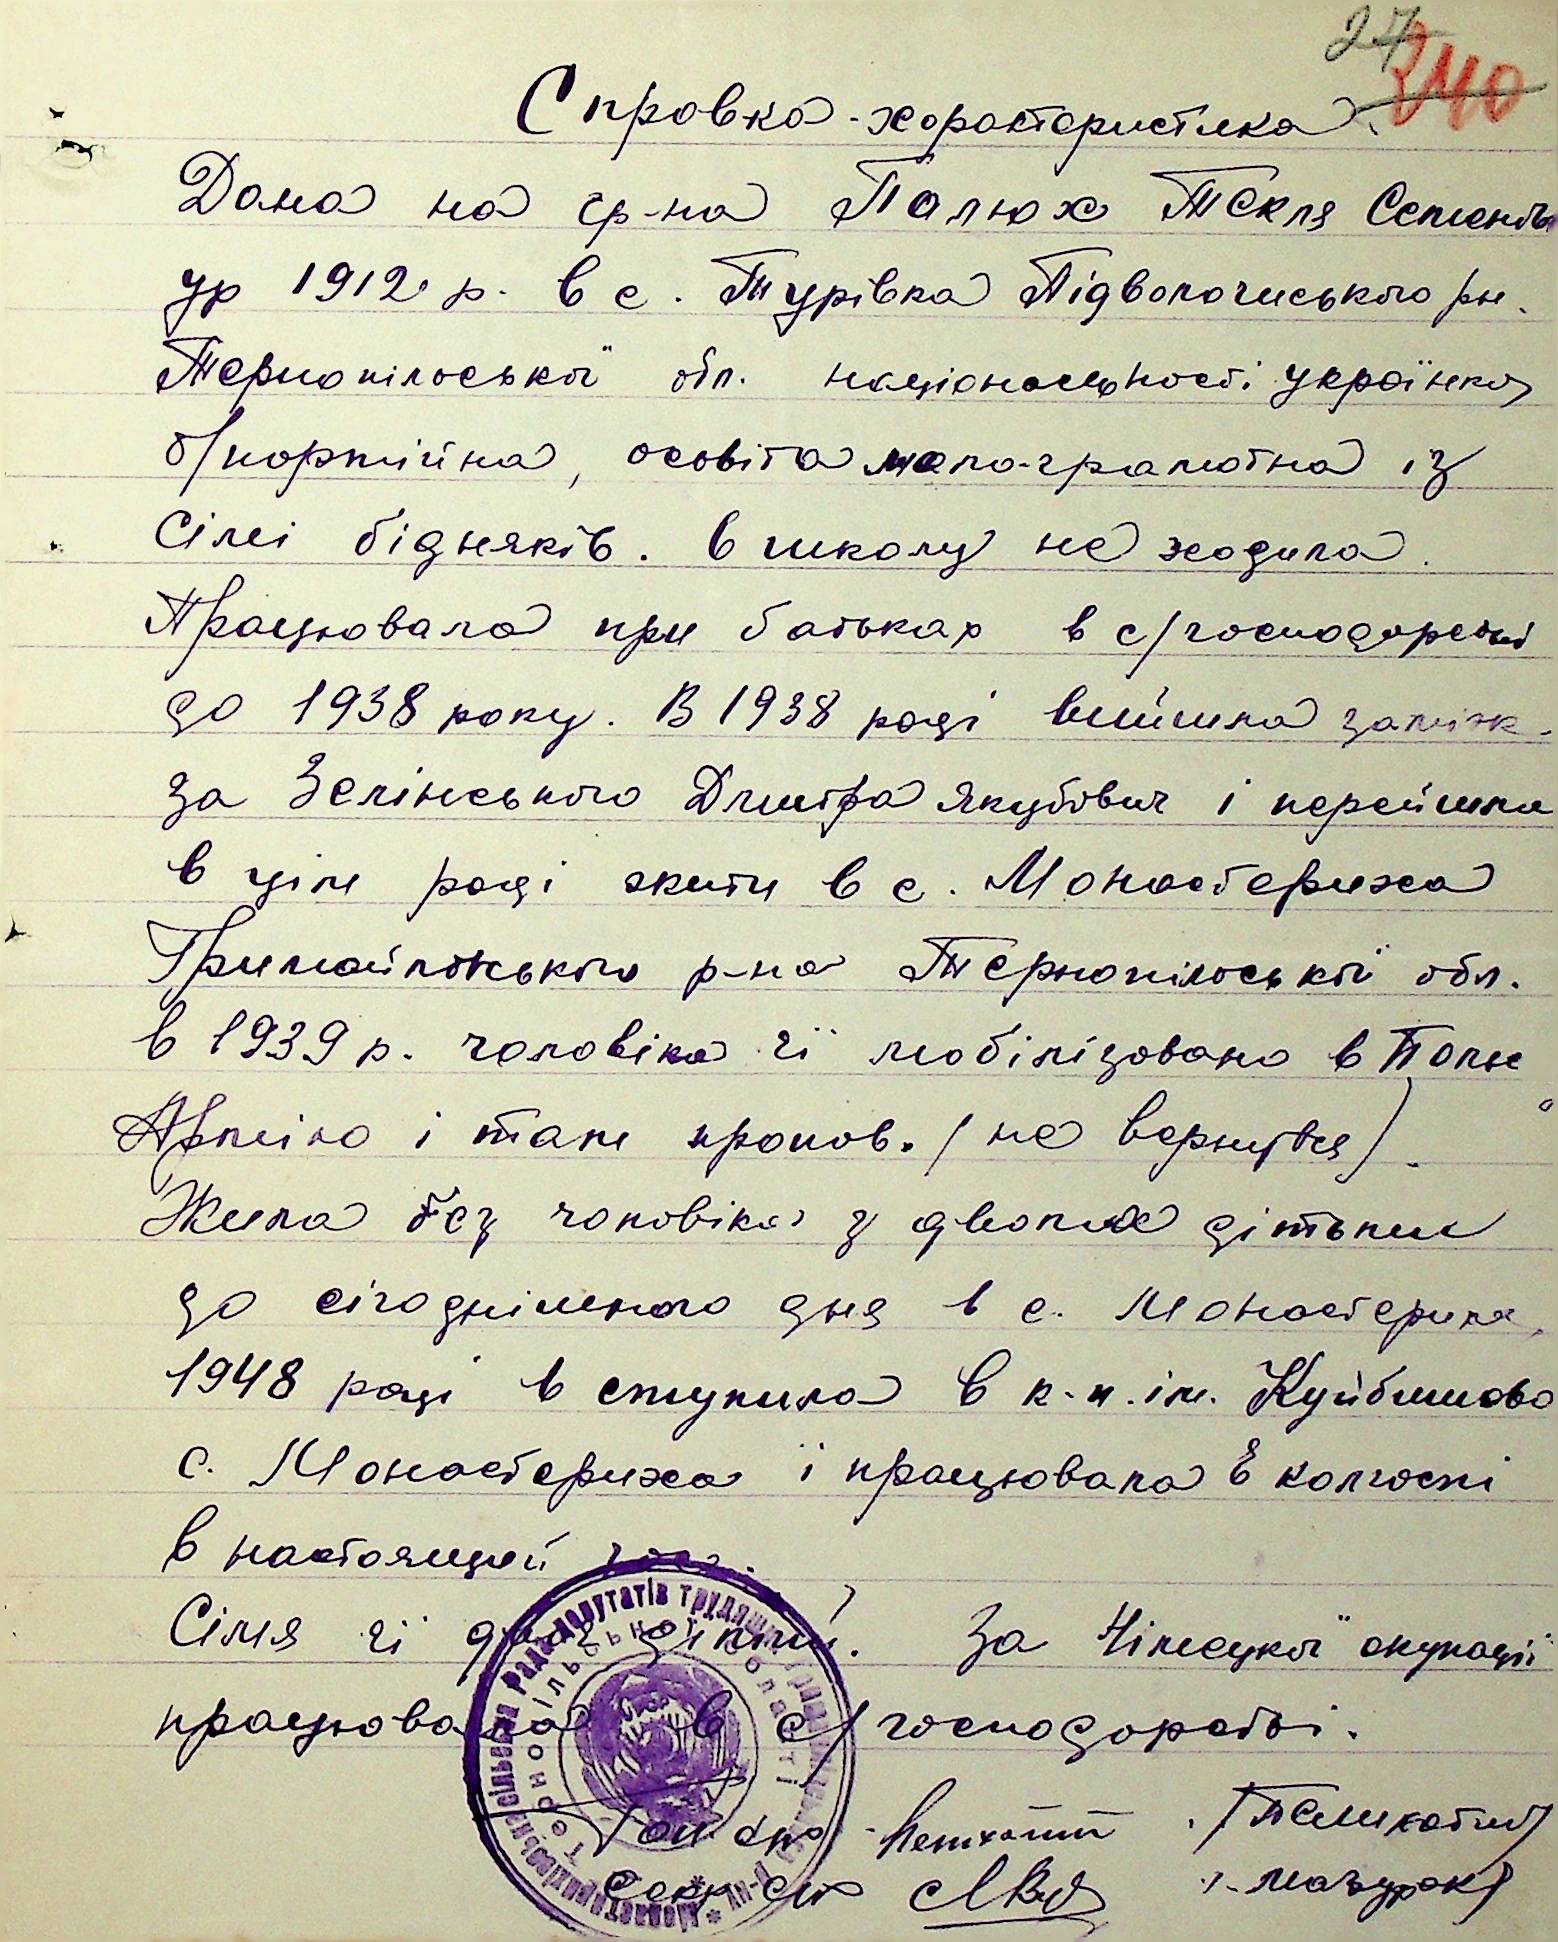 27 240
Справка-характеристика.
Дана на гр-на Палюх Текля Семенів
ур 1912 р. в с. Турівка Підволочиського рн.
Тернопільської обл. національності українка
б/партійна, освіта мало-грамотна із
сімі бідняків. в школу не ходила.
Працювала при батьках в с/господарстві
до 1938 року. В 1938 році вийшла заміж
за Зелінського Дмитра Якубович і перейшла
в цім році жити в с. Монастериха
Гримайлівського р-на Тернопільської обл.
в 1939 р. чоловіка її мобілізовано в Поль
Армію і там пропав. (не вернувся).
Жила без чоловіка з двома дітьми
до сігоднішнього дня в с. Монастериха,
1948 році в ступила в к-п. ім. Куйбишова
с. Монастериха і працювала в колгоспі
в настоящей час.
Сімя її двоє дітий. За Німецької окупації
працювала в с/господарстві.
Гол с/р
Секр с/р (Мазурок)
сільська Рада депутатів трудящих
Тернопільської області